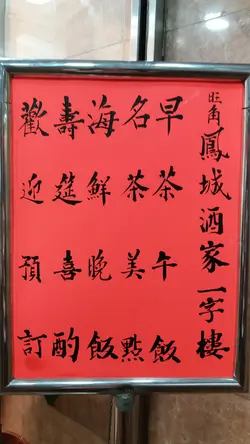 旺角鳳城酒家一字樓
早茶午飯
名茶美點
海鮮晚飯
壽筵喜酌
歡迎預訂